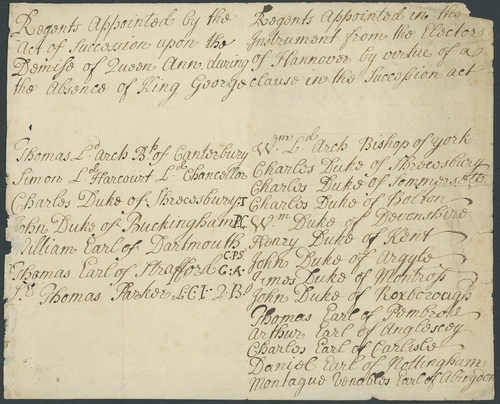 Regents Appointed by the
Act of Succession upon the
Demise of Queen Ann, during
the Absence of King George
Thomas Ld. Arch Bp. of Canterbury
Simon Ld. Harcourt Ld. Chancellor
Charles Duke of Shrewsbury T
John Duke of Buckingham P.C.
William Earl of Dartmouth C.P.S
Thomas Earl of Strafford C.A
Sr. Thomas Parker L.C.I. 2 B.
Regents Appointed in the
Instrument from the Elector
of Hannover by virtue of a
clause in the Succession act
Wm. Ld. Arch Bishop of york
Charles Duke of Shrewsbury
Charles Duke of Sommersett
Charles Duke of Bolton
Wm Duke of Devonshire
Henry Duke of Kent
John Duke of Argyle
James Duke of Montross
John Duke of Roxborough
Thomas Earl of Pembroke
Arthur Earl of Anglesey
Charles Earl of Carlisle
Daniel Earl of Nottingham
Montague Venables Earl of Abingdon